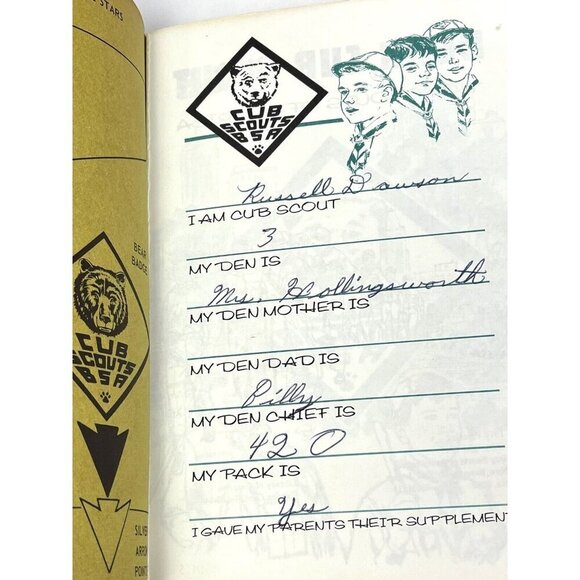 STARS
BEAR
BADGE
CUB
SCOUTS
BSA
SILVER
ARROW
POINT
CUB
SCOUTS
BSA
Russell Dawson
I AM CUB SCOUT
3
MY DEN IS
Mrs. Hollingsworth
MY DEN MOTHER IS
MY DEN DAD IS
Billy
MY DEN CHIEF IS
420
MY PACK IS
Yes
I GAVE MY PARENTS THEIR SUPPLEMENT